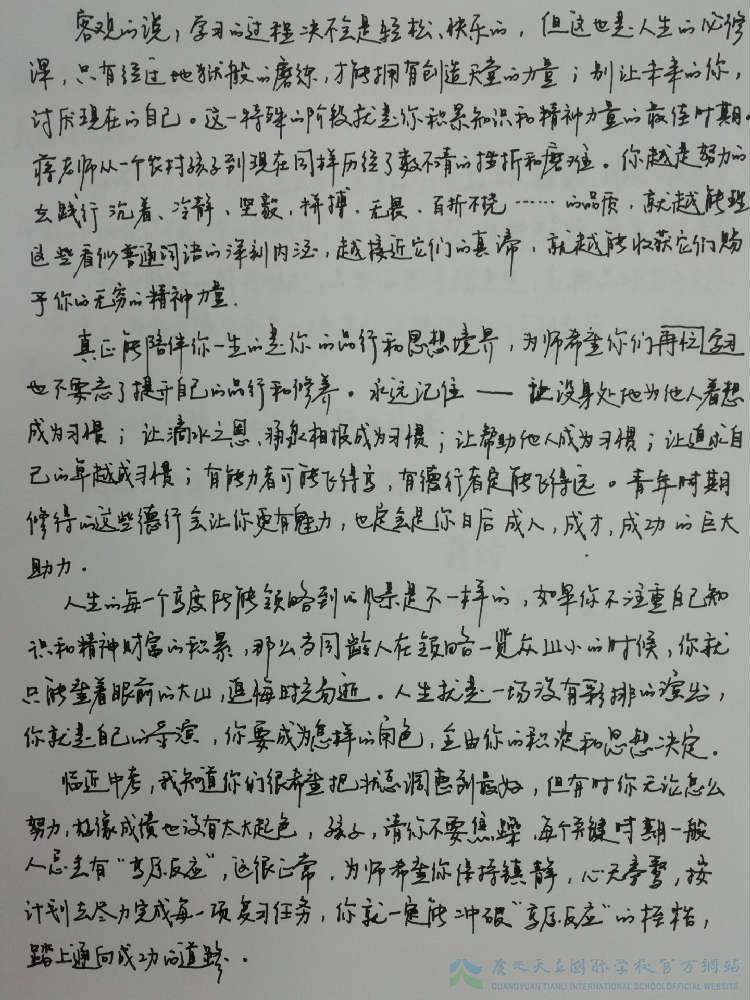 客观的说，学习的过程决不会是轻松、快乐的，但这也是人生的必修
课，只有经过地狱般的磨练，才能拥有创造天堂的力量；别让未来的你，
讨厌现在的自己。这一特殊的阶段就是你积累知识和精神力量的最佳时期。
蒋老师从一个农村孩子到现在同样历经了数不清的挫折和磨难。你越是努力的
去践行沉着、冷静、坚毅、拼搏、无畏、百折不挠……的品质，就越能理
这些看似普通词语的深刻内涵，越接近它们的真谛，就越能收获它们赐
予你的无穷的精神力量.
真正能陪伴你一生的是你的品行和思想境界，为师希望你们再忙
也不要忘了提升自己的品行和修养。永远记住——让设身处地为他人着想
成为习惯；让滴水之恩、涌泉相报成为习惯；让帮助他人成为习惯；让追求自
己的卓越成习惯；有能力者可能飞得高，有德行者定能飞得远。青年时期
修得的这些德行会让你更有魅力，也定会是你日后成人，成才，成功的巨大
助力。
人生的每一个高度所能领略到的风景是不一样的，如果你不注重自己知
识和精神财富的积累，那么当同龄人在领略一览众山小的时候，你就
只能望着眼前的大山，追悔时光匆逝。人生就是一场没有彩排的演出，
你就是自己的导演，你要成为怎样的角色，全由你的积淀和思想决定。
临近中考，我知道你们很希望把状态调整到最好，但有时你无论怎么
努力，好像成绩也没有太大起色，孩子，请你不要焦躁，每个关键时期一般
人总会有“高原反应”，这很正常，为师希望你保持镇静，心无旁骛，按
计划去尽力完成每一项复习任务，你就一定能冲破“高原反应”的桎梏，
踏上通向成功的道路.
广元天立国际学校官方网站
GUANGYUAN TIANLI INTERNATIONAL SCHOOL OFFICIAL WEBSITE